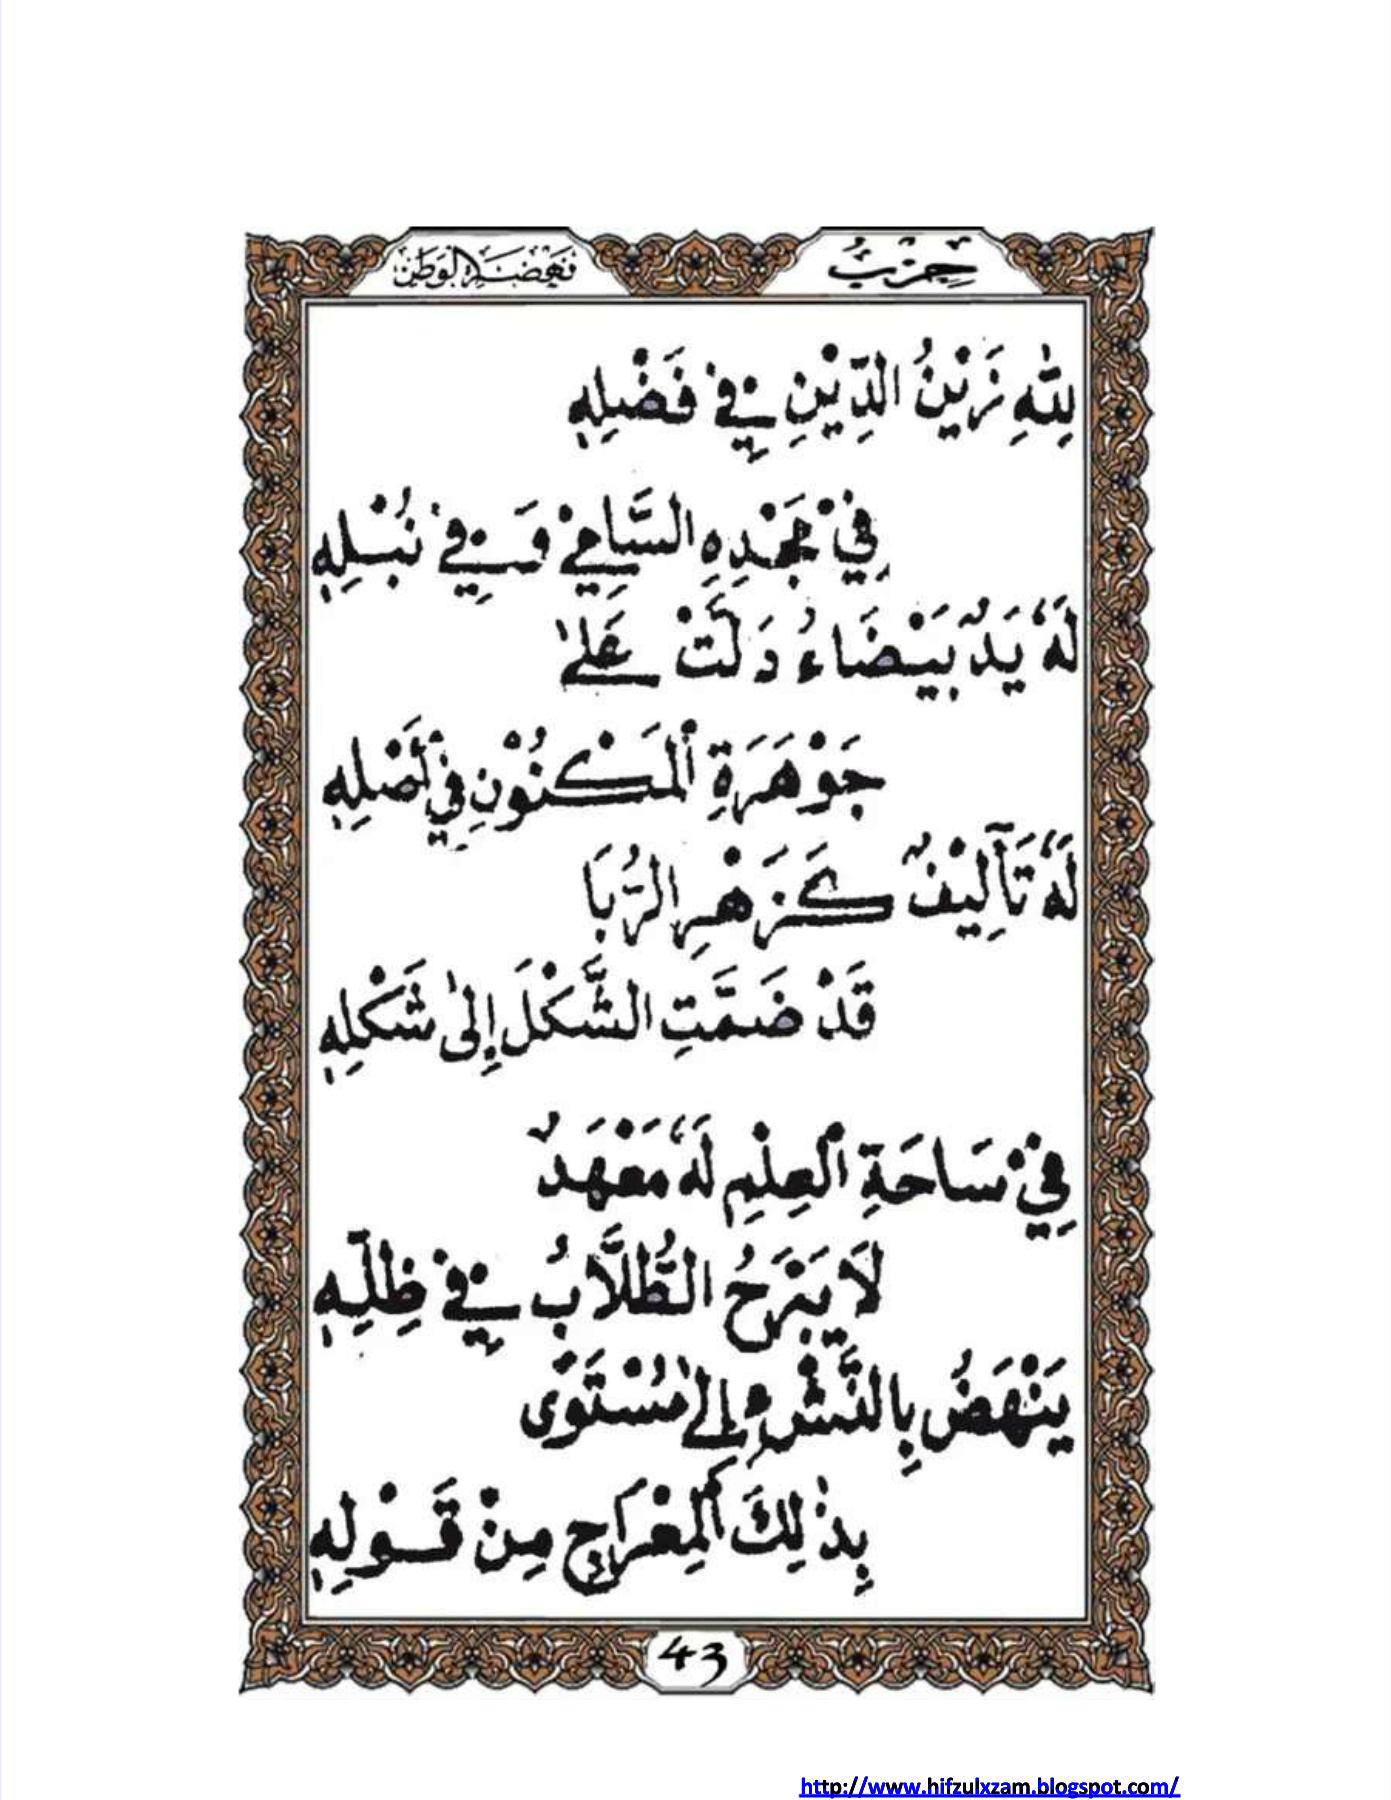 حِزْبُ نَهْضَةِ الْوَطَنْ
لِلّٰهِ زَيْنُ الدِّيْنِ فِيْ فَضْلِهِ
فِيْ مَجْدِهِ السَّامِيْ وَفِيْ نُبْلِهِ
لَهُ يَدٌ بَيْضَاءُ دَلَّتْ عَلٰى
جَوْهَرَةِ الْمَكْنُوْنِ فِيْ أَصْلِهِ
لَهُ تَآلِيْفٌ كَزَهْرِ الرُّبَا
قَدْ ضَمَّتِ الشَّكْلَ إِلٰى شَكْلِهِ
فِيْ سَاحَةِ الْعِلْمِ لَهُ مَعْهَدٌ
لَا يَبْرَحُ الطُّلَّابُ فِيْ ظِلِّهِ
يَنْهَضُ بِالنَّشْءِ إِلٰى مُسْتَوًى
بِذٰلِكَ الْمِعْرَاجِ مِنْ قَوْلِهِ
43
http://www.hifzulxzam.blogspot.com/